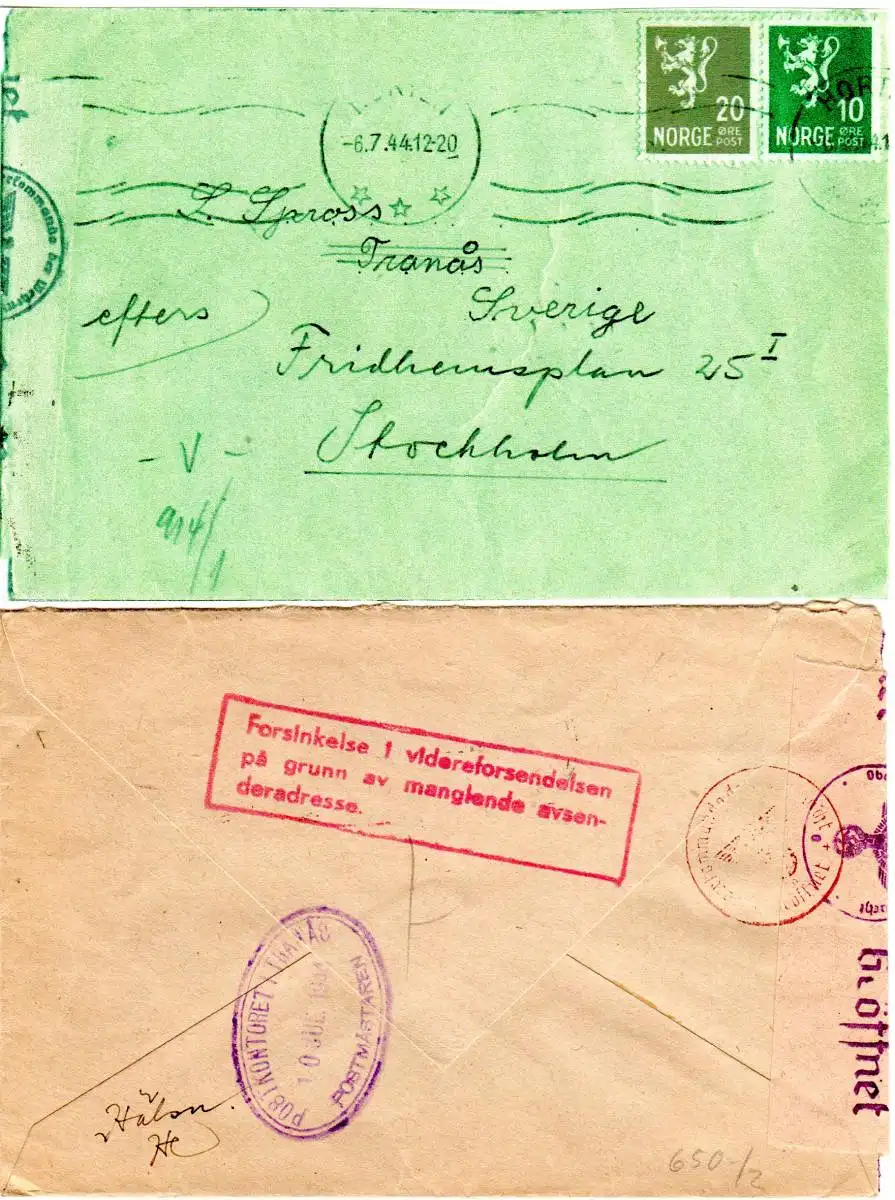 20
NORGE ØRE POST
10
NORGE ØRE POST
HORT
-6.7.44.12-20
S. Spross
Tranås
Sverige
efters
Fridhemsplan 25 I
Stockholm
- V -
914/1
Forsinkelse i videreforsendelsen
på grunn av manglende avsen-
deradresse.
POSTKONTORET I TRANÅS
10 JUL 1944
POSTMÄSTAREN
Geöffnet
650-/2